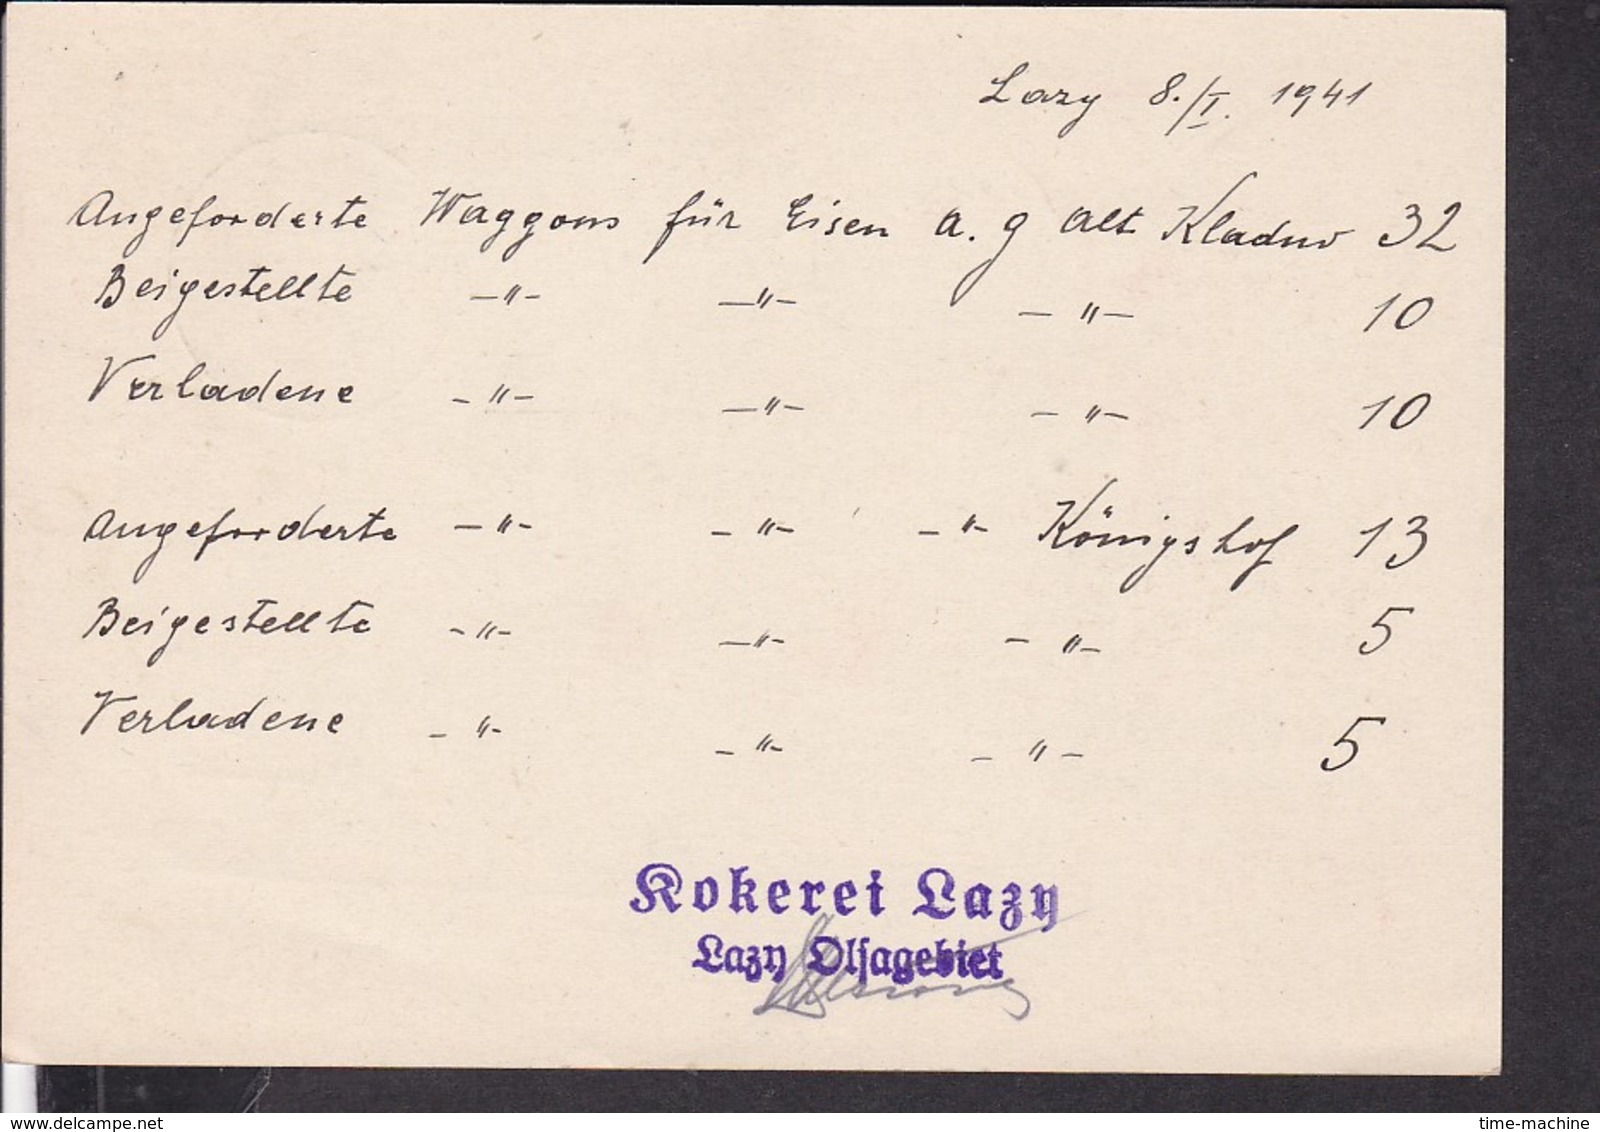 Lazy 8./I. 1941
Angeforderte Waggons für Eisen a. g alt Kladno 32
Beigestellte -"- -"- -"- 10
Verladene -"- -"- -"- 10
Angeforderte -"- -"- -"- Königshof 13
Beigestellte -"- -"- -"- 5
Verladene -"- -"- -"- 5
Kokerei Lazy
Lazy Olsagebiet
delcampe.net
time-machine